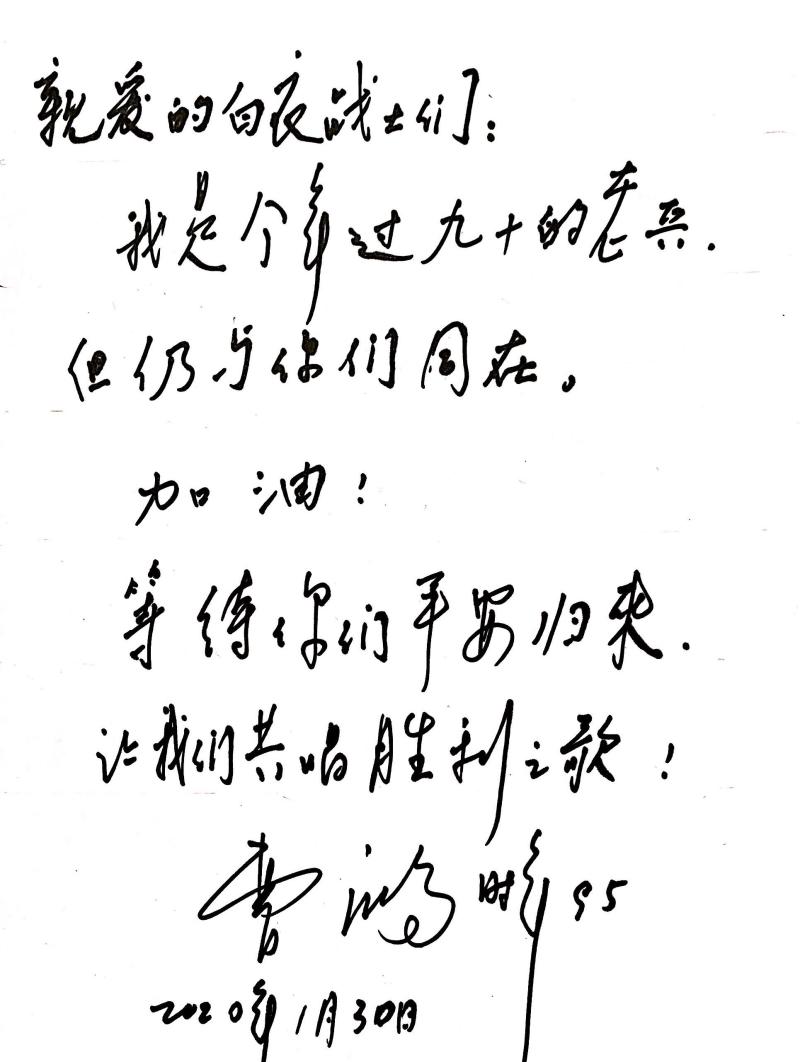 亲爱的白衣战士们:
我是个年过九十的老兵.
但仍与你们同在。
加油!
等待你们平安归来.
让我们共唱胜利之歌!
曹鸿 时年95
2020年1月30日